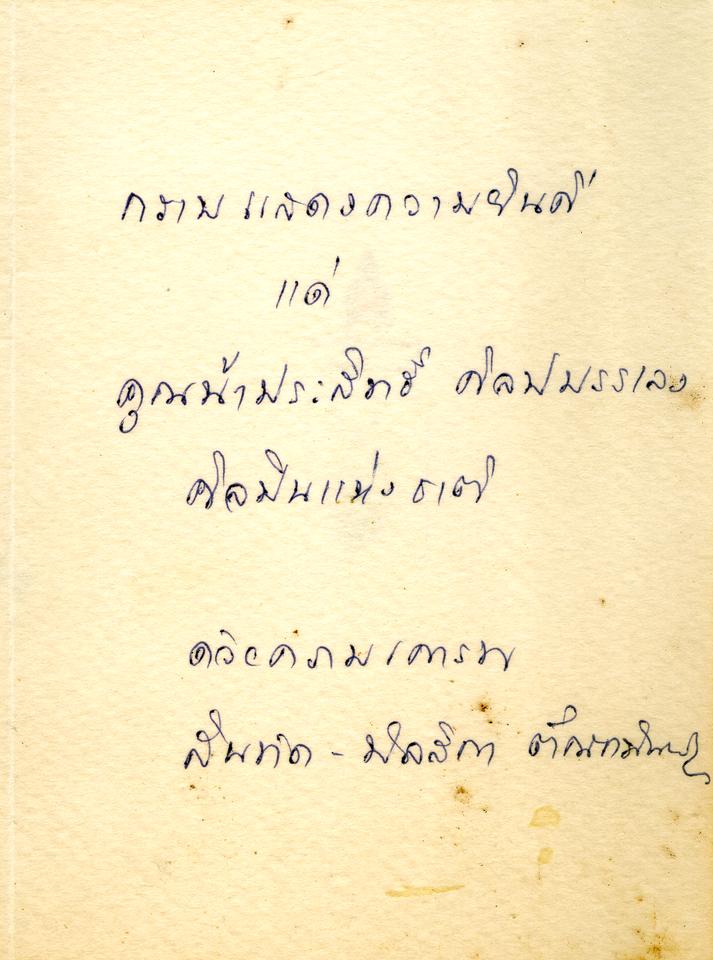 กราบแสดงความยินดี
แด่
คุณน้าประสิทธิ์ ศิลปบรรเลง
ศิลปินแห่งชาติ
ด้วยความเคารพ
สันทัด - มัลลิกา ตัณฑนันทน์